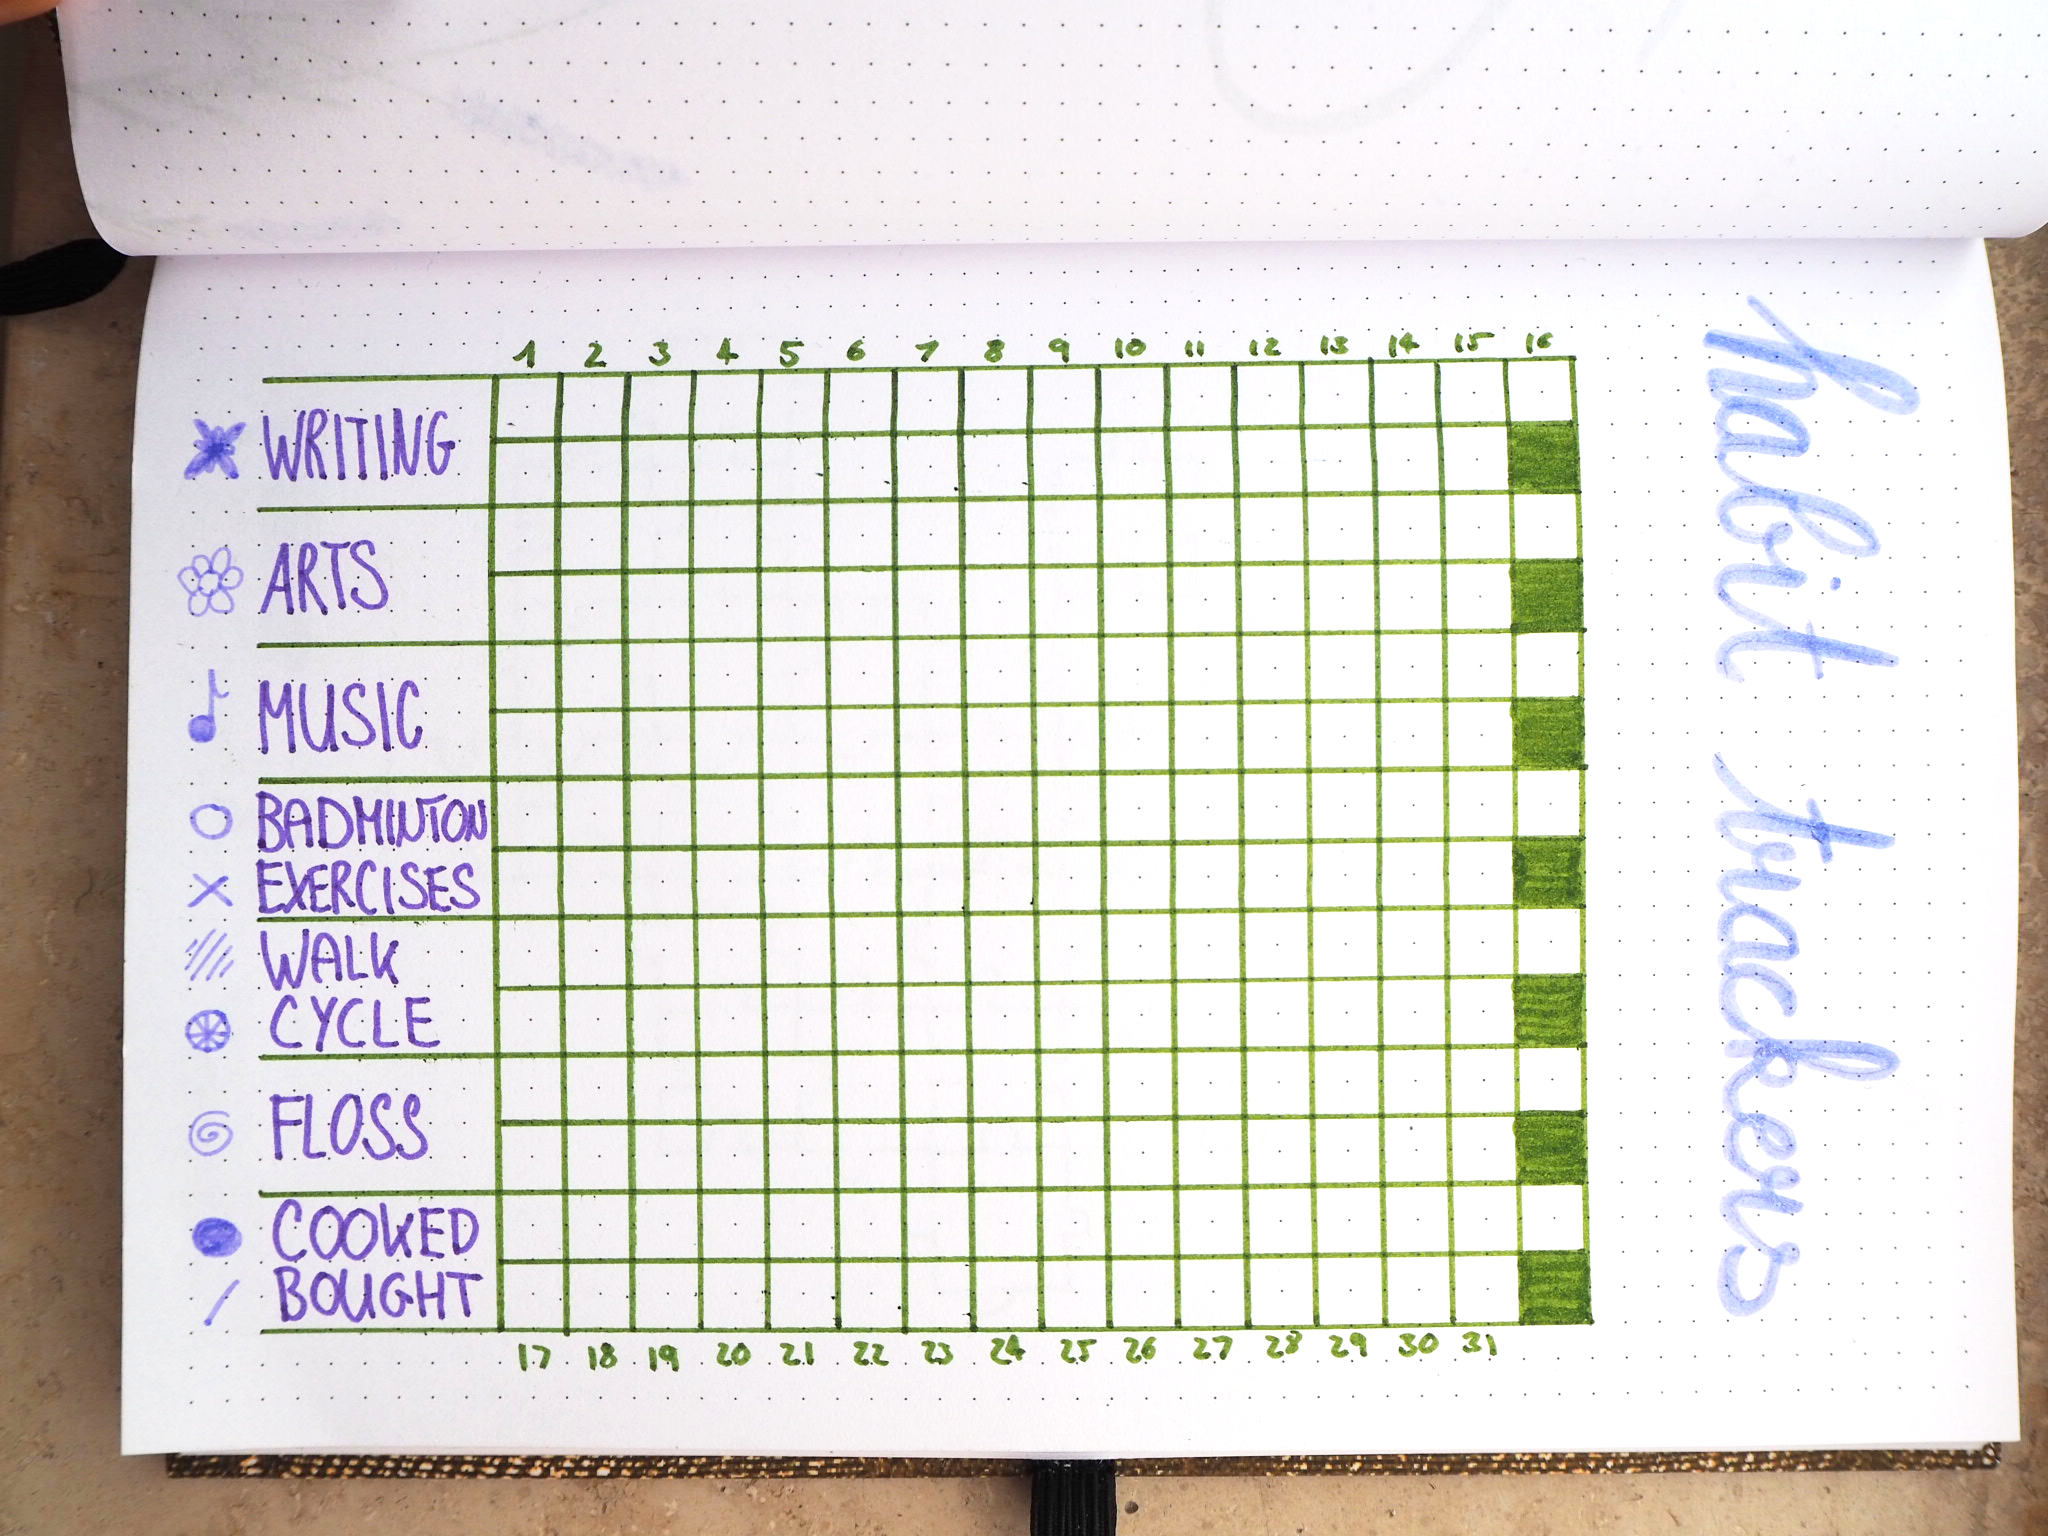 1 2 3 4 5 6 7 8 9 10 11 12 13 14 15 16
WRITING
ARTS
MUSIC
BADMINTON
EXERCISES
WALK
CYCLE
FLOSS
COOKED
BOUGHT
17 18 19 20 21 22 23 24 25 26 27 28 29 30 31
habit trackers